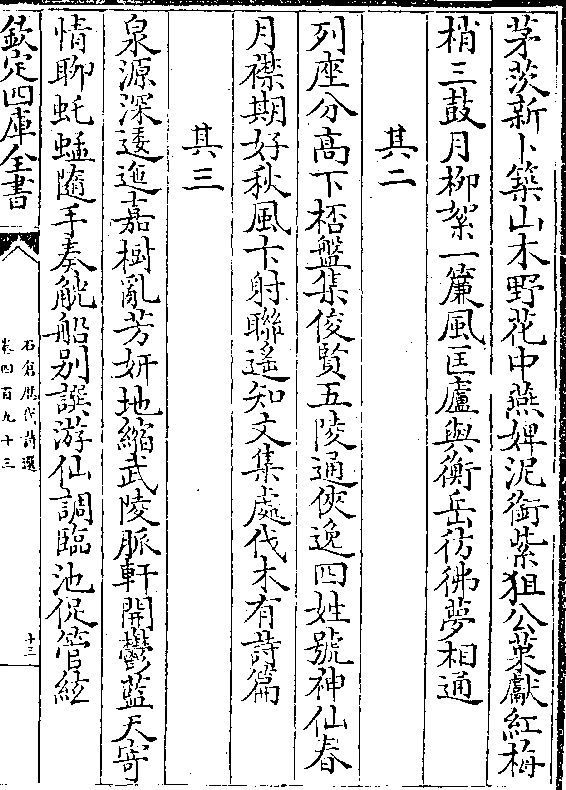 茅茨新卜築山木野花中燕婢泥銜紫狙公菓獻紅梅
梢三鼓月柳絮一簾風匡廬與衡岳彷彿夢相通
其二
列座分高下桮盤集俊賢五陵通俠逸四姓號神仙春
月襟期好秋風卞射聯遙知文集處伐木有詩篇
其三
泉源深逶迤嘉樹亂芳妍地縮武陵脈軒開鬱藍天寄
情聊蚝蜢隨手奏觥船别譔游仙調臨池促管絃
欽定四庫全書
石倉歷代詩選
卷四百九十三
十三